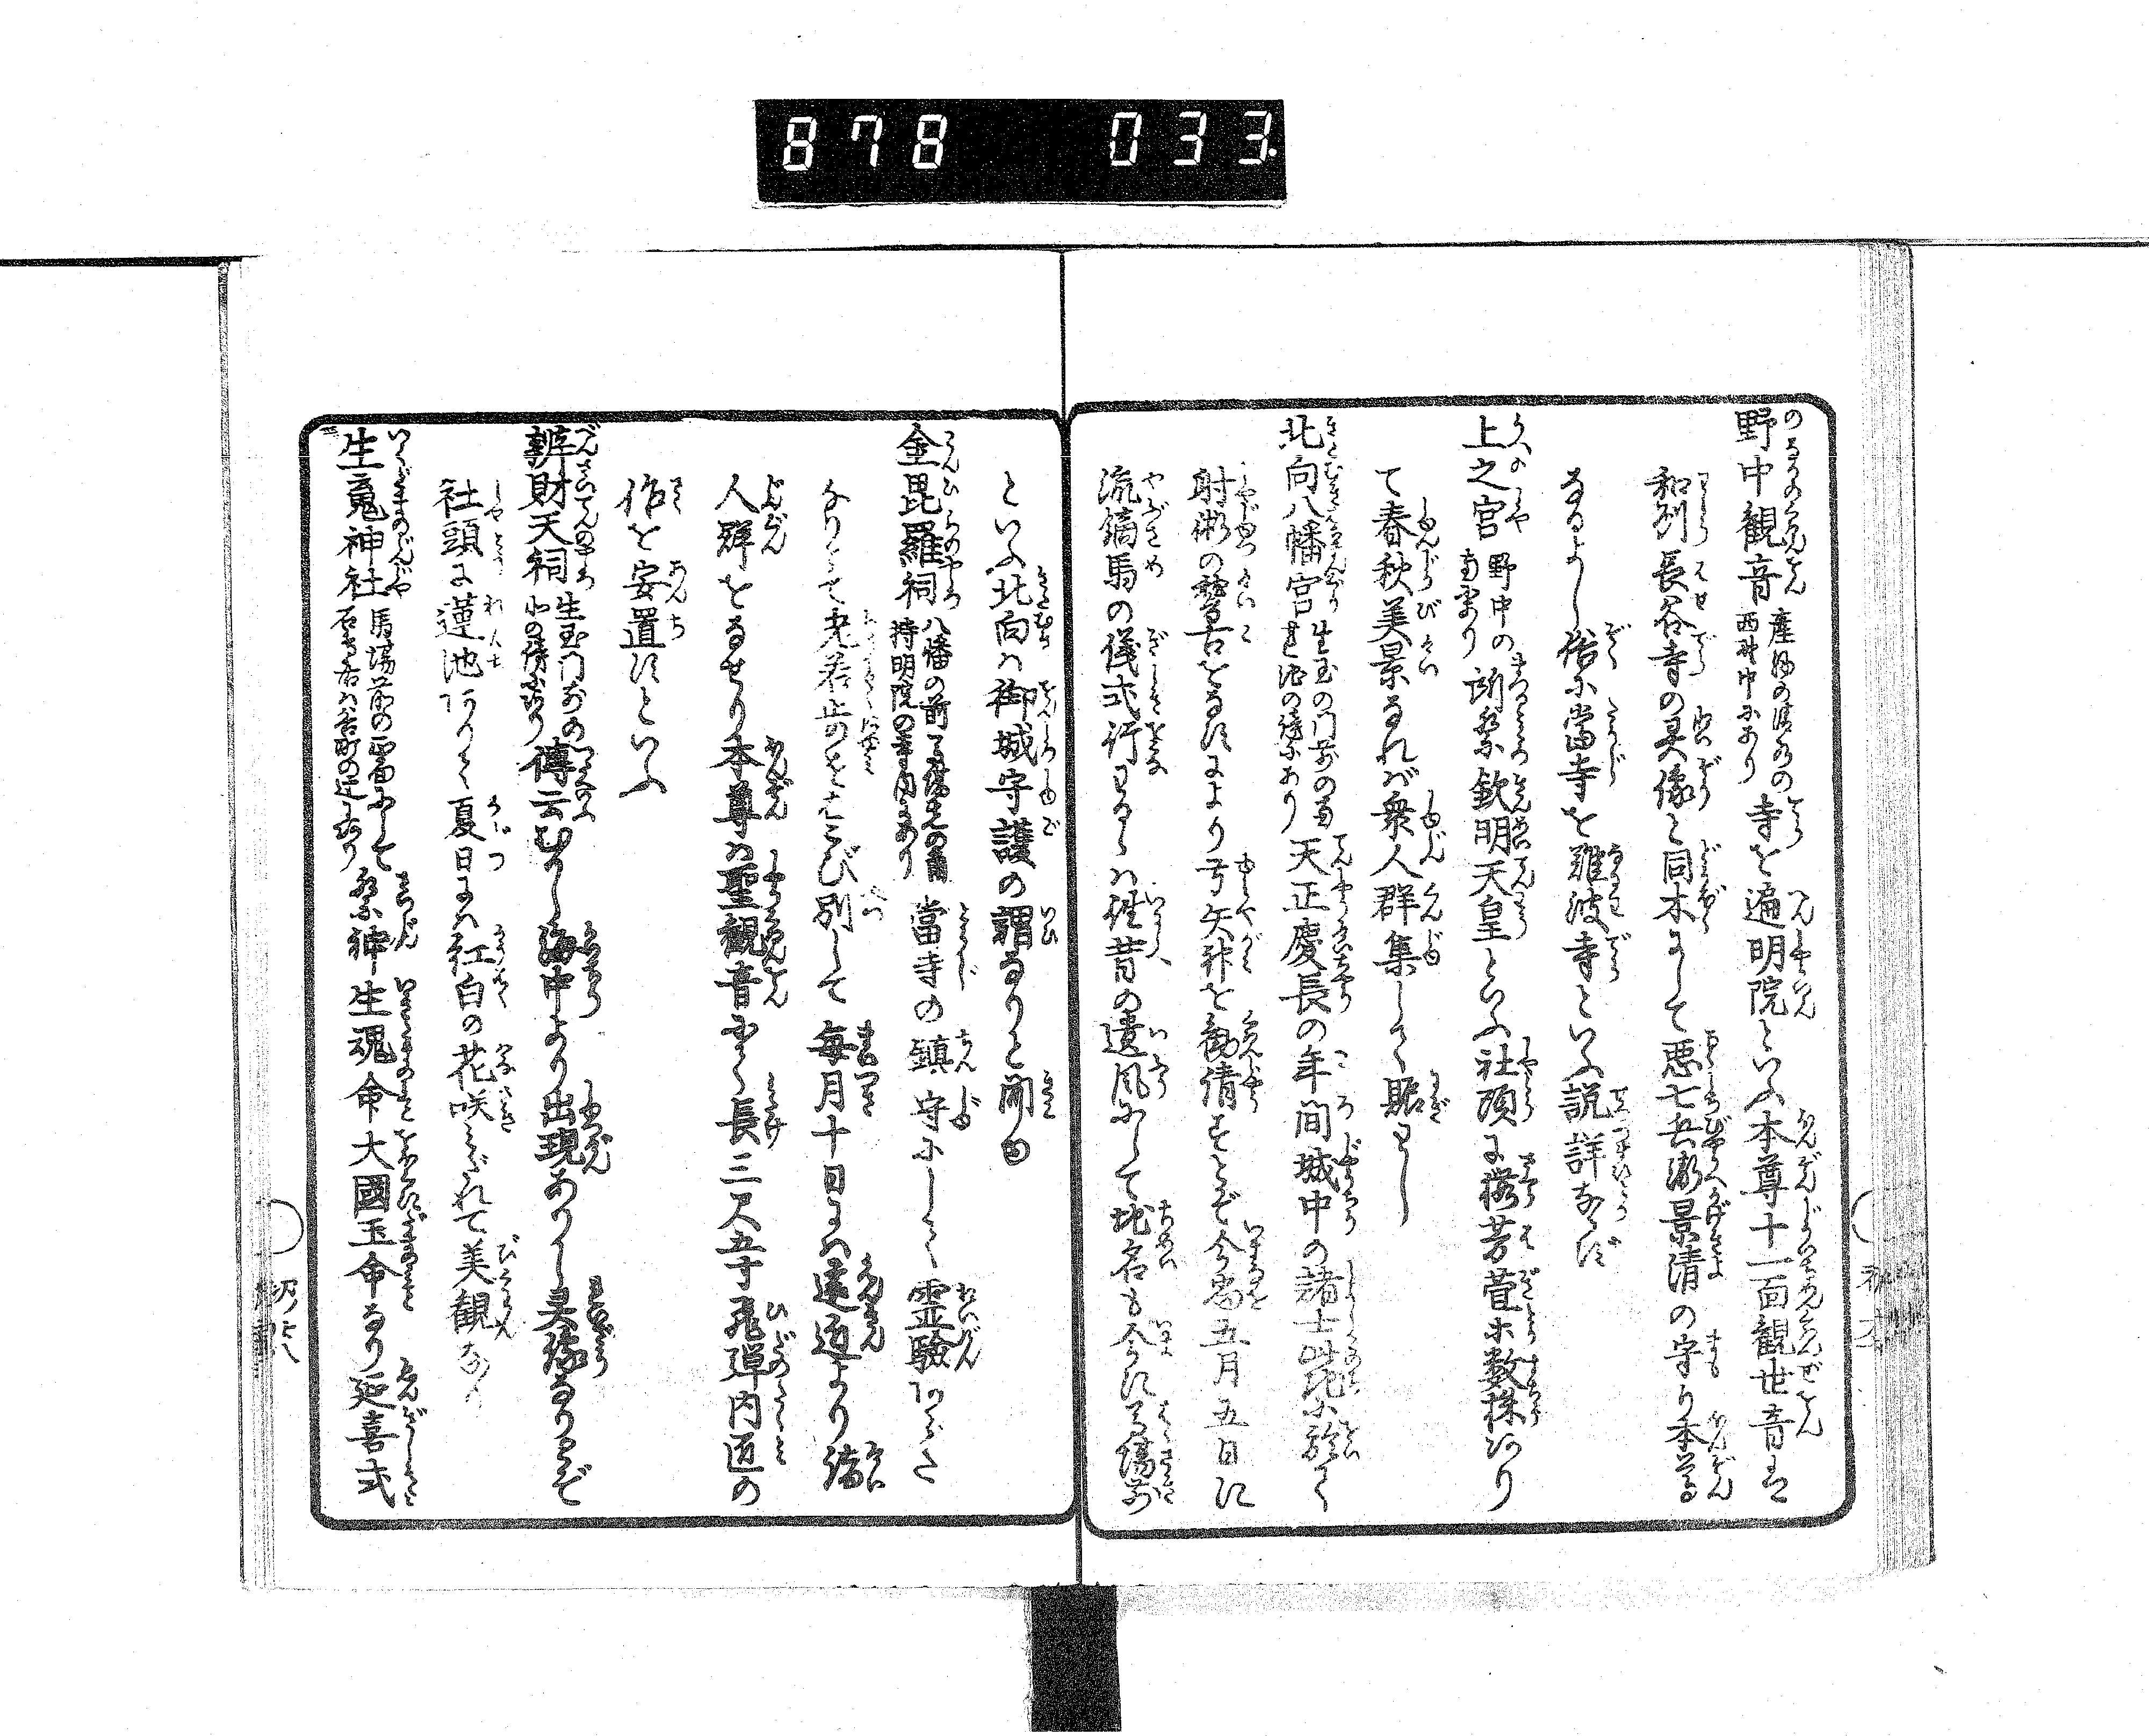 878 033
野中観音 産湯の清水の西野中にあり 寺を遍明院といふ本尊十一面観世音は
和州長谷寺の灵像と同木にして悪七兵衛景清の守り本尊
なるよし俗に當寺を難波寺といふ説詳ならず
上之宮 野中の南にあり 祭 欽明天皇といふ社頭に桜芳萱等数株あり
て春秋美景なれば衆人群集して賑わし
北向八幡宮 生玉の門前の馬 は池の傍にあり 天正慶長の年間城中の諸士此に於て
射術の警古をなすにより弓矢神を勧請すとぞ今尚五月五日に
流鏑馬の儀式行わるゝは往昔の遺風にして地名も今に馬場前
といふ北向は御城守護の謂なりと聞ゆ
金毘羅祠 八幡の前 持明院の寺内にあり 當寺の鎮守にして霊験あらた
なりとて老若歩をはこび別して毎月十日には遠近より諸
人群をなせり本尊は聖観音にて長三尺五寸飛彈内匠の
作を安置すといふ
辨財天祠 生玉門前の北の傍にあり 傳云むかし海中より出現ありし灵像なりとぞ
社頭に蓮池ありて夏日には紅白の花咲みだれて美観なり
生魂神社 馬場前の西にして 石鳥居は谷町の辻にあり 祭神生魂命大國玉命なり延喜式